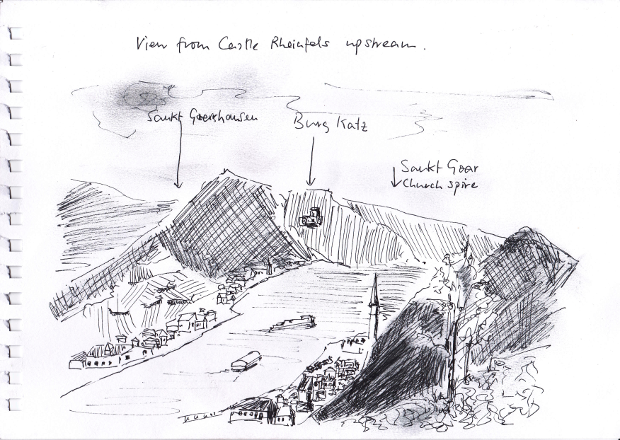 View from Castle Rheinfels upstream.
Sankt Goarshausen
Burg Katz
Sankt Goar
Church spire